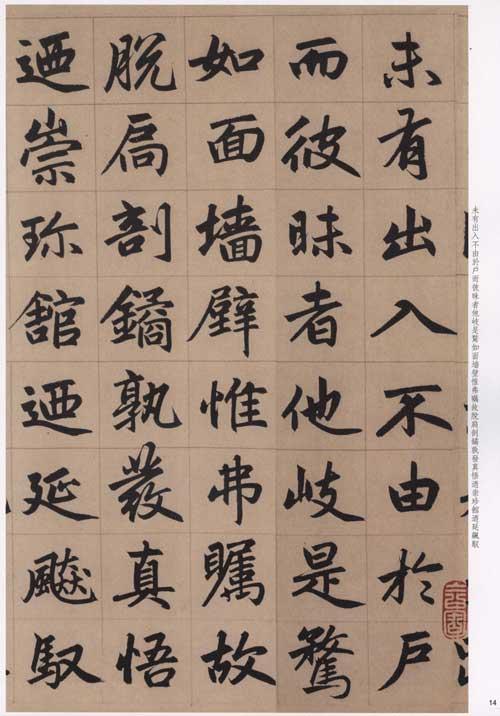 未有出入不由於戶
而彼昧者他岐是騖
如面墙壁惟弗矚故
脫扃剖鐍孰發真悟
迺崇珎館迺延飆馭
未有出入不由於户而彼昧者他岐是騖如面墙壁惟弗矚故脫扃剖鐍孰發真悟迺崇珍館迺延飆馭
14